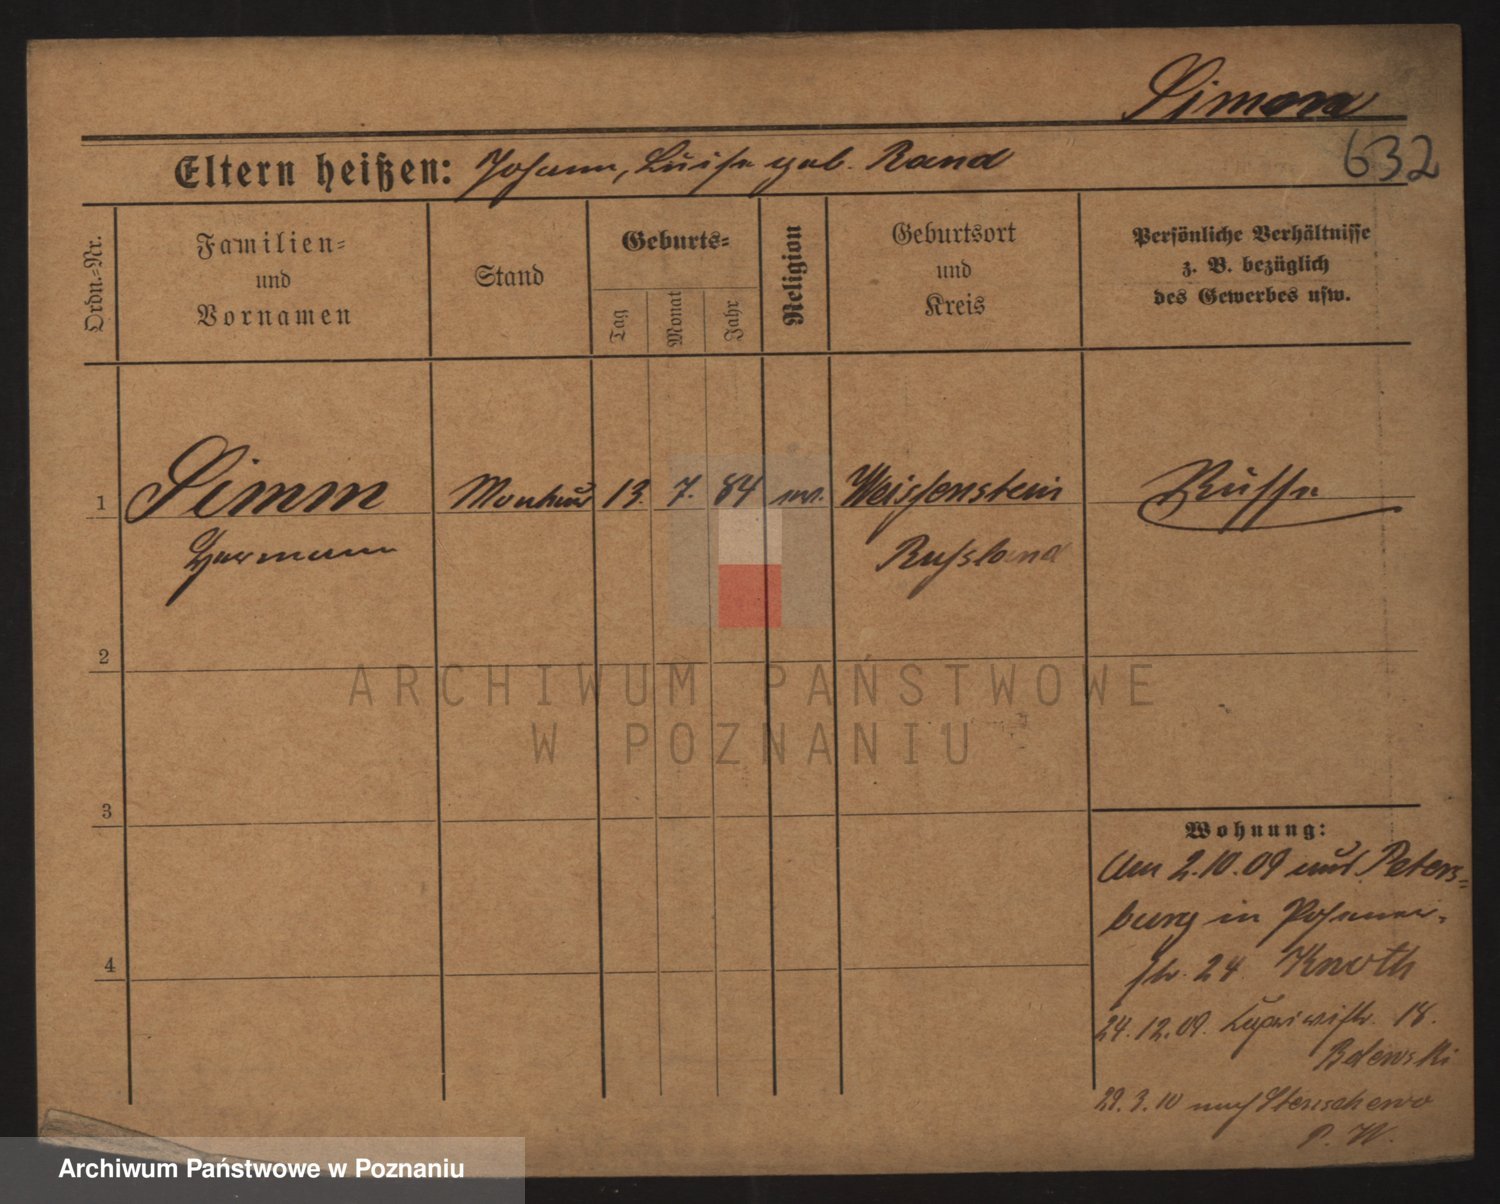 Simon
632
Eltern heißen: Johann, Luise geb. Rand
Ordn.-Nr.
Familien-
und
Vornamen
Stand
Geburts-
Tag
Monat
Jahr
Religion
Geburtsort
und
Kreis
Persönliche Verhältnisse
z. B. bezüglich
des Gewerbes usw.
1 Simm Monteur 13. 7. 84 ev. Weissenstein Russe
Hermann Russland
2
ARCHIWUM PAŃSTWOWE
W POZNANIU
3
Wohnung:
Am 2.10.09 aus Peters-
burg in Posener-
str. 24 Knoth
4
24.12.09. 18.
29.3.10 nach Stenschewo
P. W.
Archiwum Państwowe w Poznaniu